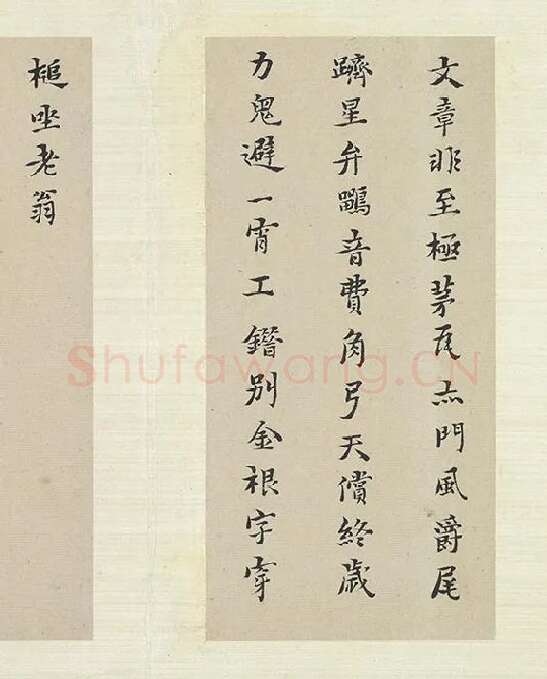 文章非至極茅瓦亦門風爵尾
躋星弁鷃音費角弓天償終歲
力鬼避一宵工鐕別金根字穿
槌坐老翁
Shufawang.CN